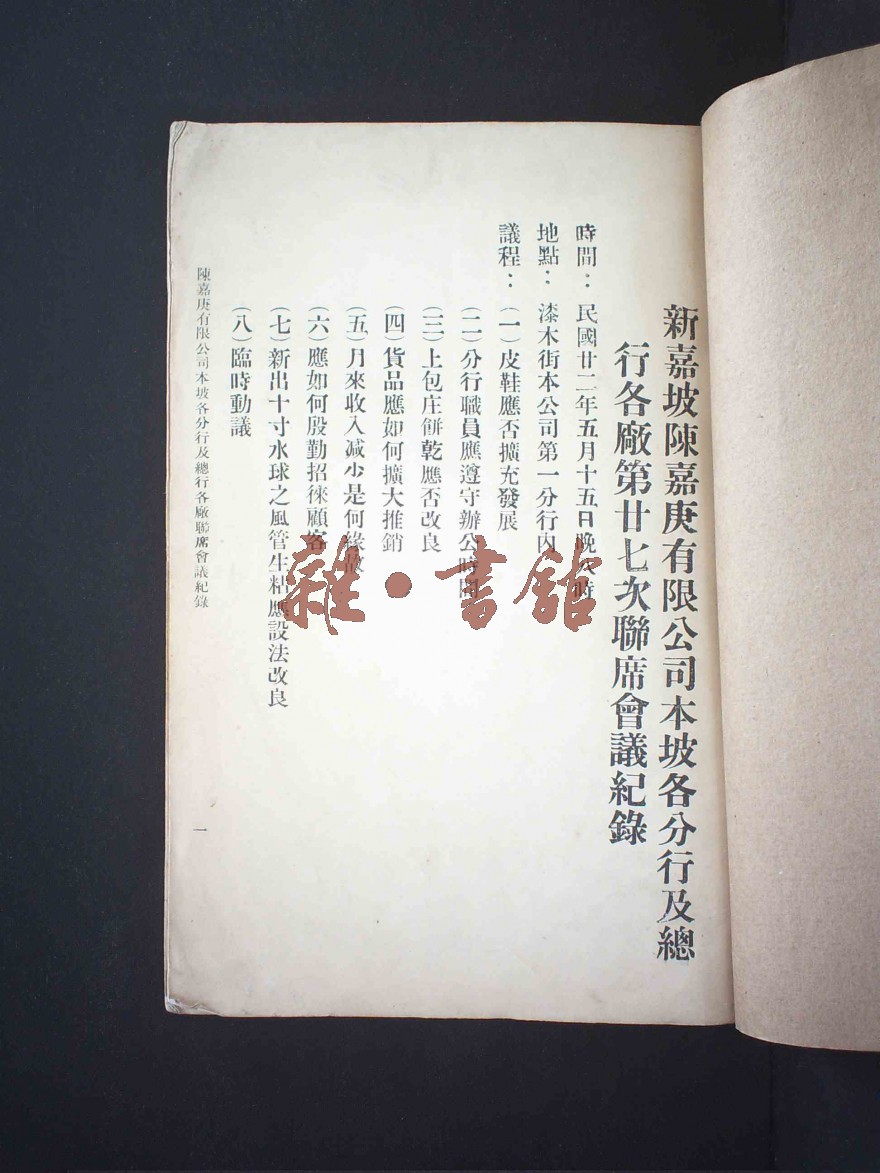 新嘉坡陳嘉庚有限公司本坡各分行及總
行各廠第廿七次聯席會議紀錄
時間：民國廿二年五月十五日晚八時
地點：漆木街本公司第一分行內
議程：（一）皮鞋應否擴充發展
（二）分行職員應遵守辦公時間
（三）上包庄餅乾應否改良
（四）貨品應如何擴大推銷
（五）月來收入減少是何緣故
（六）應如何殷勤招徠顧客
（七）新出十寸水球之風管生粘應設法改良
（八）臨時動議
陳嘉庚有限公司本坡各分行及總行各廠聯席會議紀錄
一
雜·書館